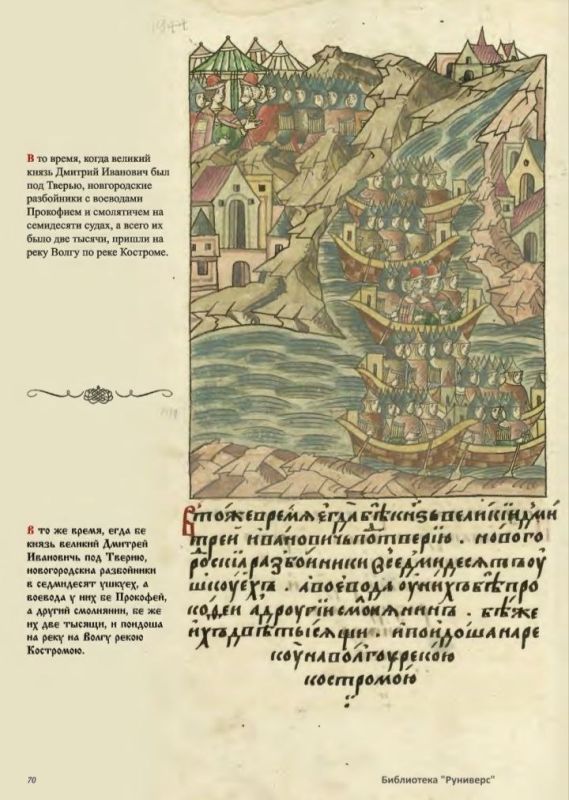 1944
В то время, когда великий
князь Дмитрий Иванович был
под Тверью, новгородские
разбойники с воеводами
Прокофием и смолятичем на
семидесяти судах, а всего их
было две тысячи, пришли на
реку Волгу по реке Костроме.
В то же время, егда бе
князь великий Дмитрей
Ивановичь под Тверию,
новогородскиа разбойники
в седмидесят ушкуех, а
воевода у них бе Прокофей,
а другий смолянин, бе же
их две тысящи, и поидоша
на реку на Волгу рекою
Костромою.
В тоже время егда бѣ кн҃зь великїи дми
трей ивановичь по тверию . новаго
роскїа разбойники в седмидесятъ оу
шкоуехъ . а воевода оу нихъ бѣ про
кофеи а дроугїи смолянинъ . бѣ же
ихъ двѣ тысящи . и поидоша на ре
коу на волгоу рекою
костромою
70
Библиотека "Руниверс"